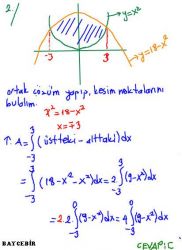 2/
y=x²
-3
3
y=18-x²
ortak çözüm yapıp, kesim noktalarını
bulalım.
x²=18-x²
x=∓3
A=∫₋₃³(üstteki-alttaki)dx
=∫₋₃³(18-x²-x²)dx=2∫₋₃³(9-x²)dx
=2.2∫₋₃⁰(9-x²)dx=4∫₋₃⁰(9-x²)dx
BAYCEBİR
CEVAP:C